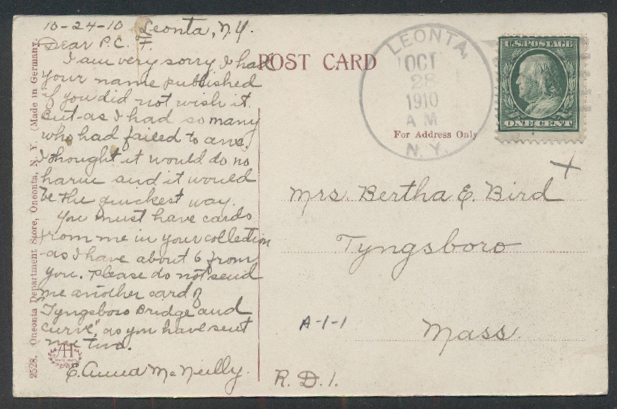 10-24-10 Leonta, N.Y.
Dear P.C.
I am very sorry I had
your name published
if you did not wish it
but as I had so many
who had failed to ans.
I thought it would do no
harm and it would
be the quickest way.
You must have cards
from me in your collection
as I have about 6 from
you. Please do not send
me another card of
"Tyngsboro Bridge and
Curve", as you have sent
me two.
E. Anna McNeilly.
2528. Oneonta Department Store, Oneonta, N. Y. (Made in Germany.
POST CARD
For Address Only
LEONTA,
OCT
28
1910
A M
N.Y.
U.S. POSTAGE
ONE CENT
Mrs. Bertha E. Bird
Tyngsboro
A-1-1
Mass.
R.D.1.